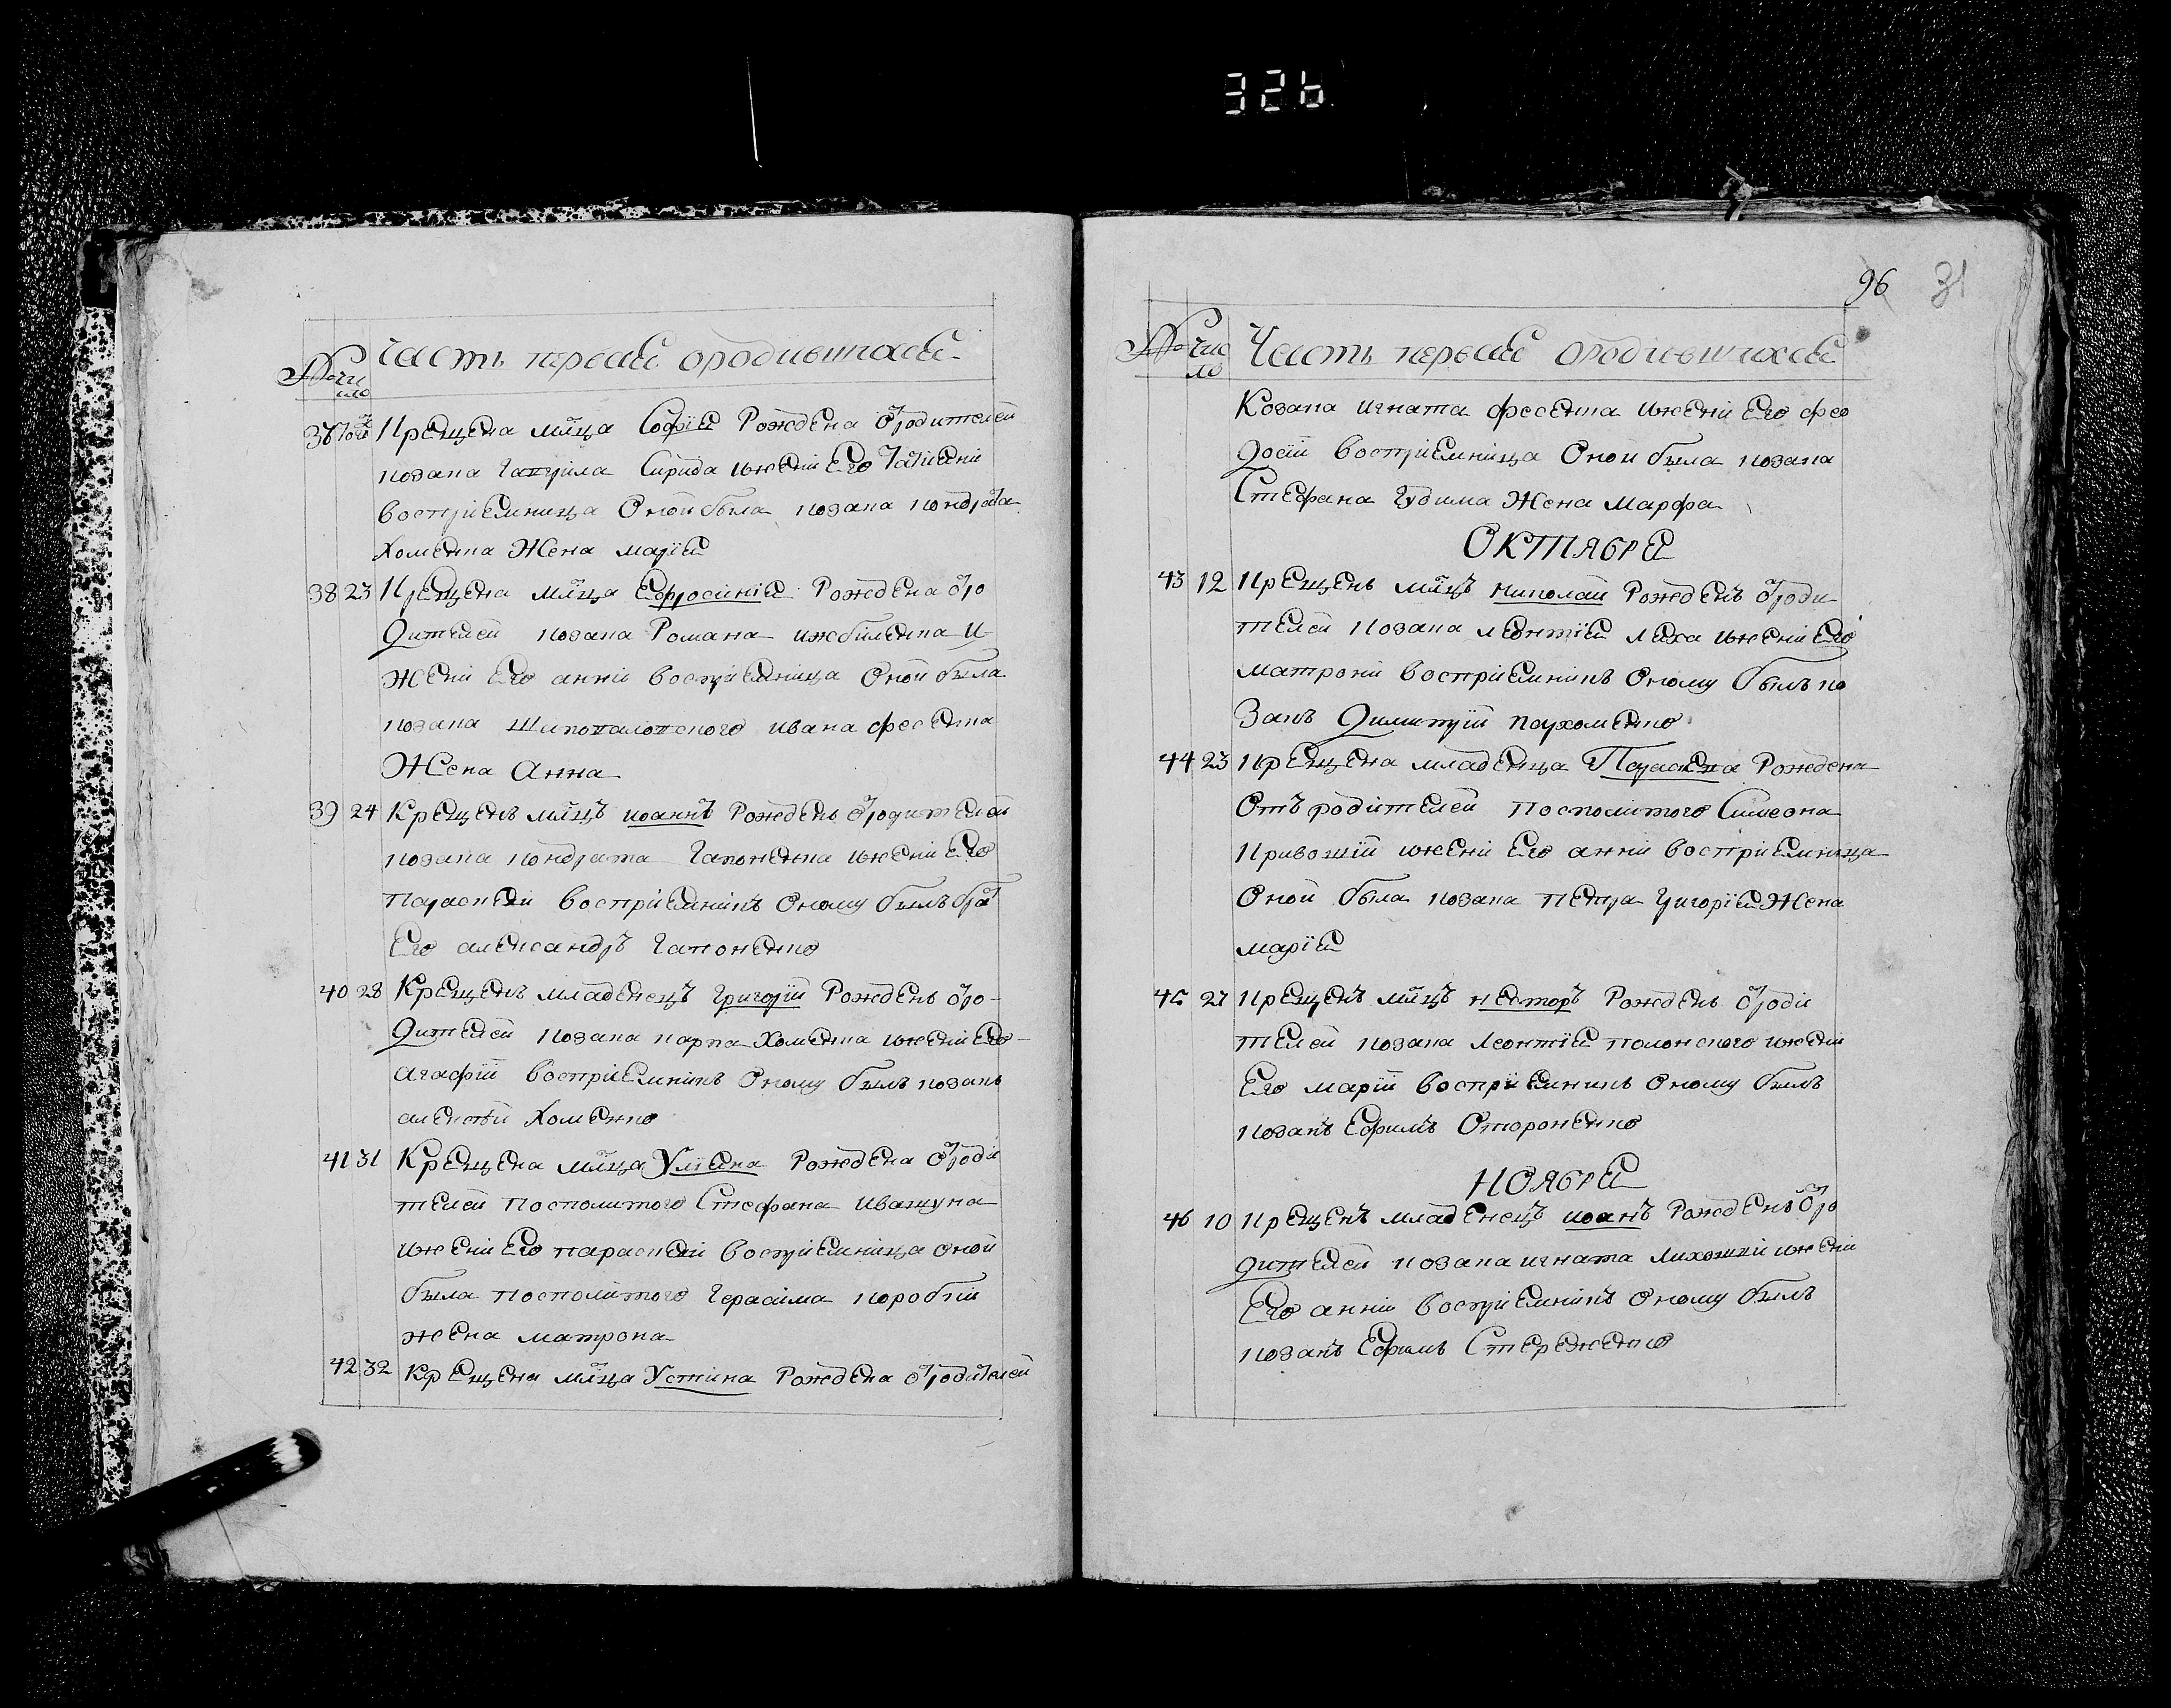 326
№ Чи
сло
Часть первая ородившихся
37 того Крещена мл͠ца Софія Рождена ѿродителей
козака Гаврила Сирида ижені Его Татіани
воспріемница Оной была козака кондрата
Хоменка Жена марія
38 23 Крещена мл͠ца Ефросинія Рождена ѿро
дителей козака Романа и
Жені Его анни воспріемница Оной была
козака ивана фесенка
Жена Анна
39 24 Крещенъ мл͠цъ иоаннъ Рожденъ ѿродителей
козака кондрата Гапоненка ижені Его
Параскеи воспріемникъ Оному былъ братъ
Его александръ Гапоненко
40 28 Крещенъ младенецъ Григорій Рожденъ ѿро-
дителей козака карпа Хоменка ижені Его
агафіи воспріемникъ Оному былъ козакъ
алексѣй Хоменко
41 31 Крещена мл͠ца Уліяна Рождена ѿроди
телей Посполитого Стефана
ижені Его параскеи воспріемница оной
была посполитого Герасима коробки
жена матрона
42 32 Крещена мл͠ца Устина Рождена ѿродителей
96 31
№ Чис
ло
Часть первая ородившихся
Козака игната фесенка ижени Его фео
досіи воспріемница Оной была козака
Стефана Гудима Жена Марфа
ОКТЯБРЯ
43 12 Крещенъ мл͠цъ николай Рожденъ ѿроди
телей козака леонтія ляха ижені Его
матрони воспріемникъ Оному былъ ко
Закъ Димитрій пархоменко
44 23 Крещена младенца Параскева Рождена
Отъ родителей посполитого Симеона
Кривошіи ижені Его анни воспріемница
Оной была козака петра григорія Жена
марія
45 27 Крещенъ мл͠цъ несторъ Рожденъ ѿроди
телей козака леонтія полонского ижени
Его маріи воспріемникъ Оному былъ
козакъ Ефимъ Отороненко
НОЯБРЯ
46 10 Крещенъ младенецъ иоанъ Рожденъ ѿро
дителей козака игната лихошіи ижени
Его анни воспріемникъ Оному былъ
козакъ Ефимъ Стереженко